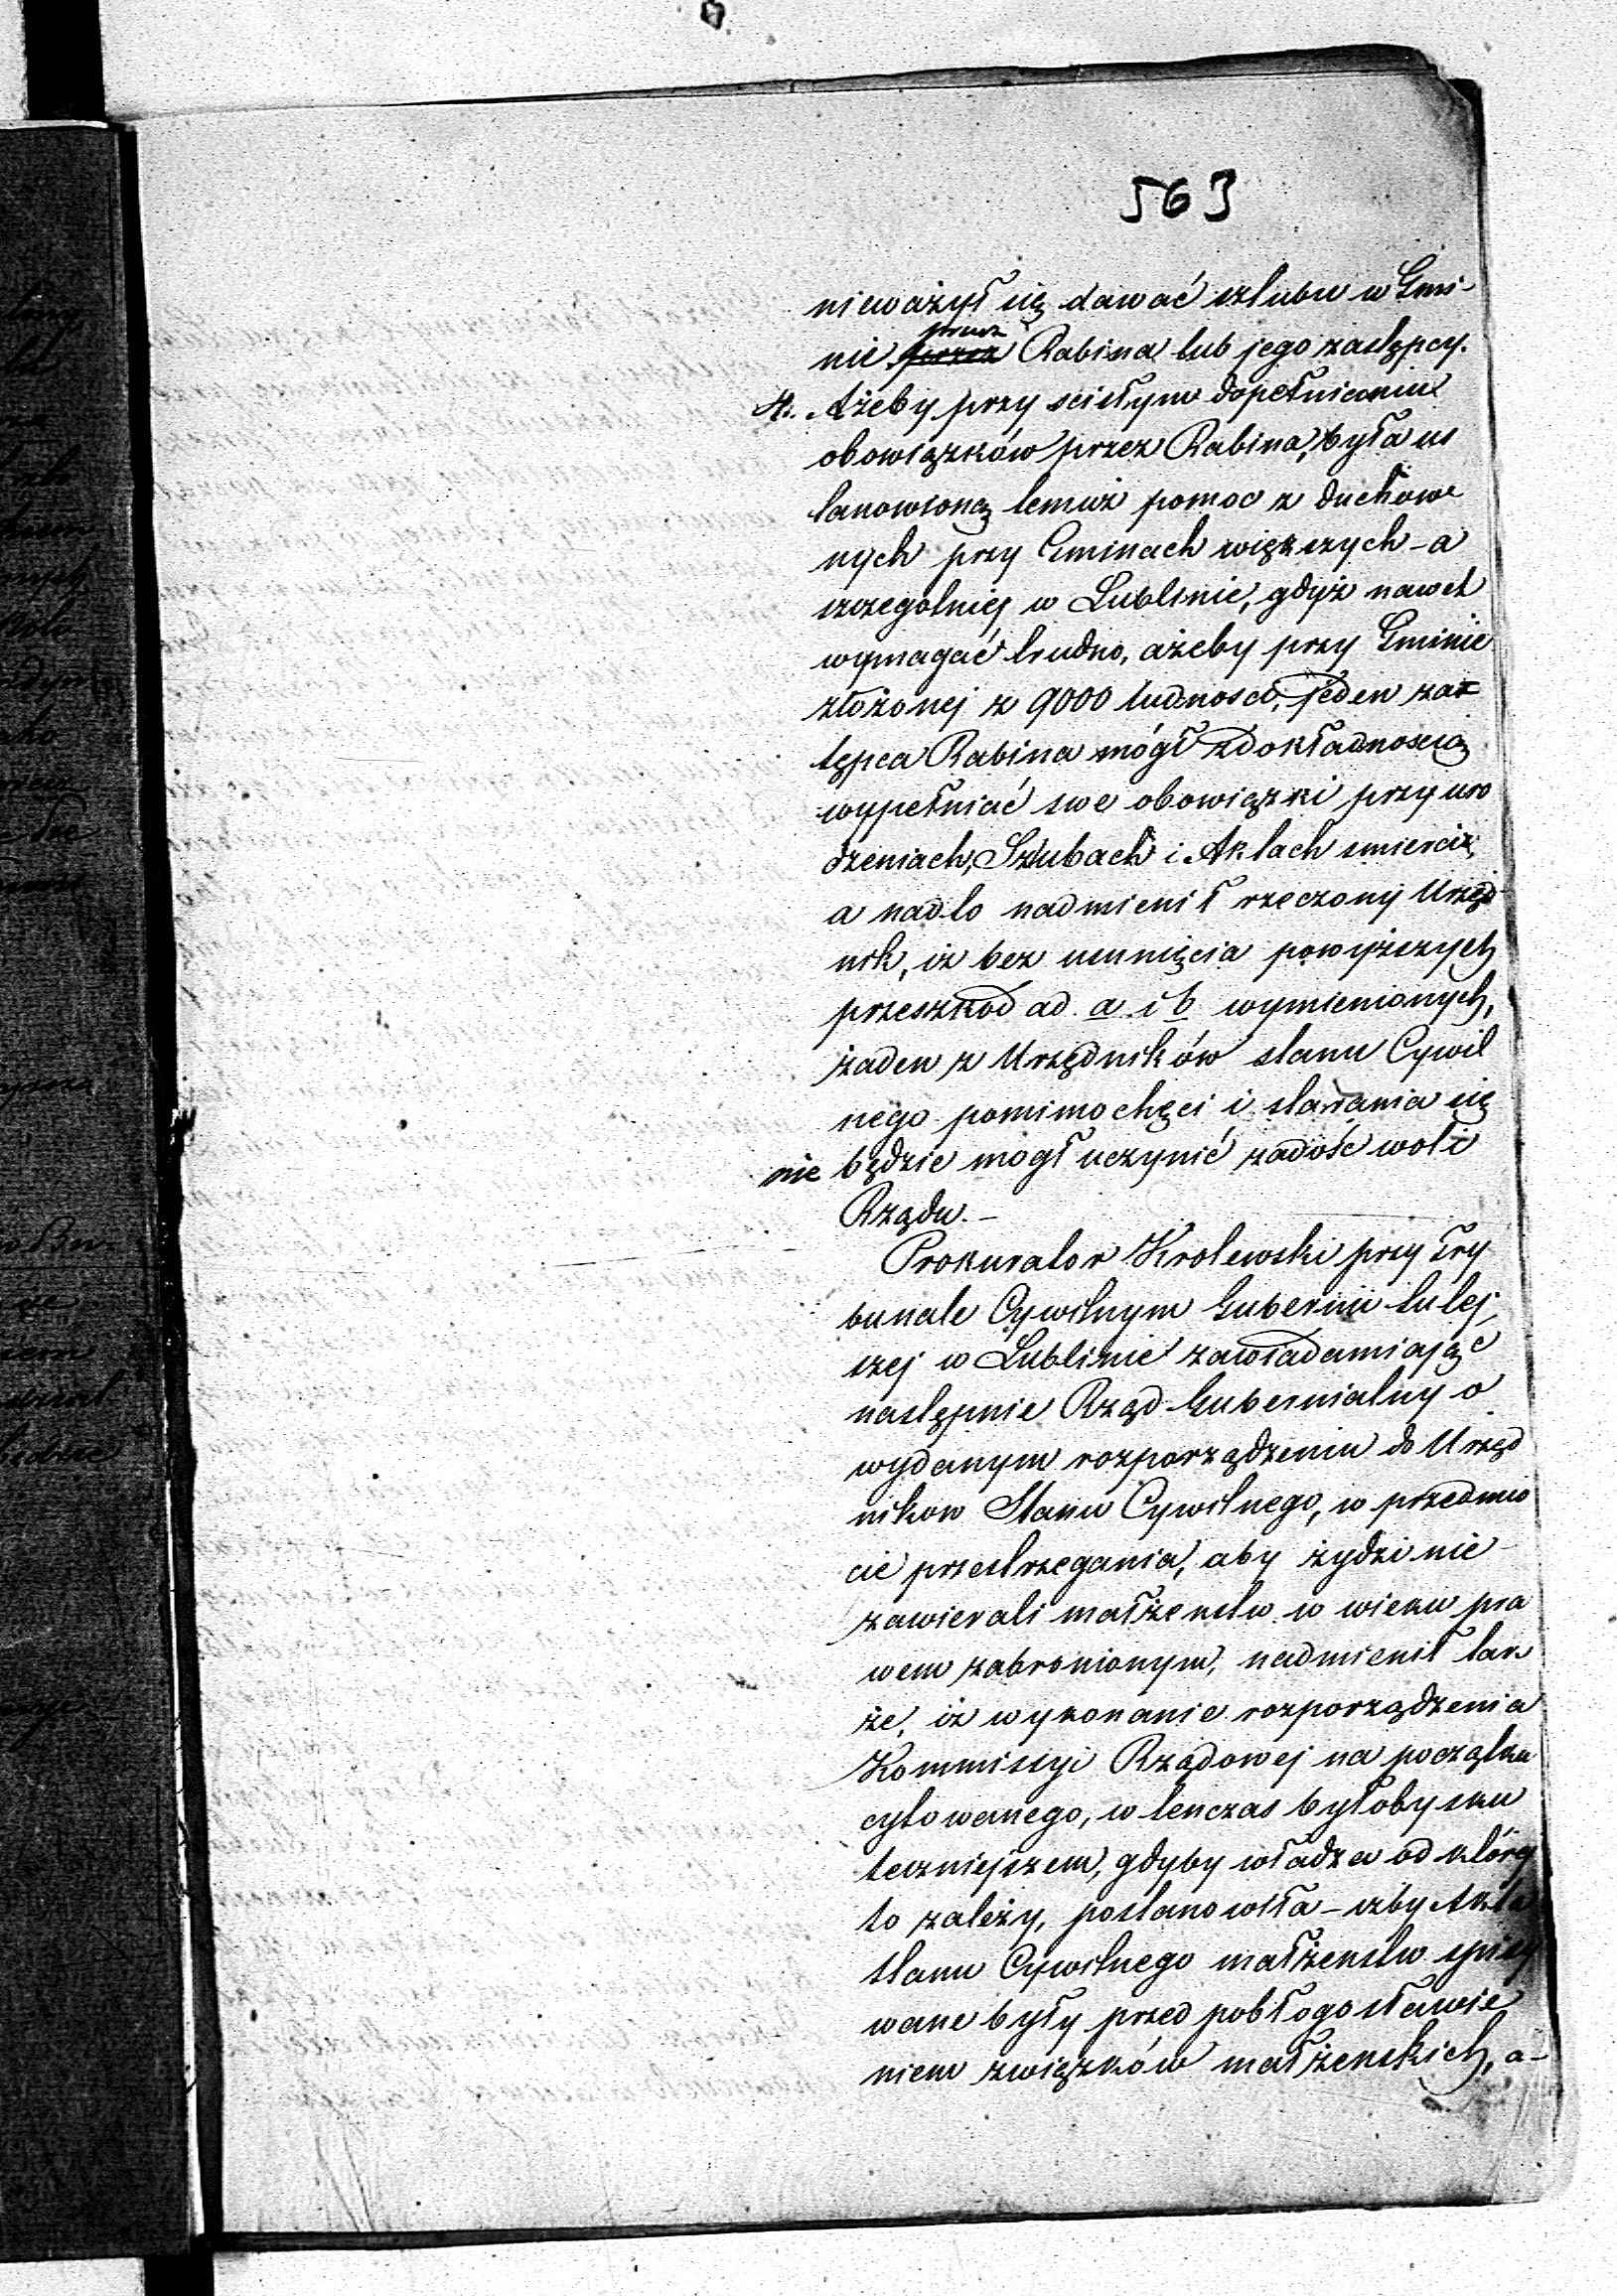 563
nieważył się dawać szlubu w Gmi-
nie prucz przez Rabina lub jego zastępcy.
4. Ażeby przy scisłym dopełnieniu
obowiązków przez Rabina, była us
tanowioną temuż pomoc z duchow
nych przy Gminach większych - a
szczegolniej w Lublinie, gdyż nawet
wymagać trudno, ażeby przy Gminie
złożonej z 9000 ludnosci, jeden zas
tępca Rabina mógł z dokładnoscią
wypełniać swe obowiązki przy uro
dzeniach, Szlubach i Aktach smierci,
a nadto nadmienił rzeczony Urzęd-
nik, iż bez usunięcia powyższych
przeszkod ad a i b wymienionych,
żaden z Urzędników stanu Cywil
nego pomimo chęci i starania się
nie będzie mogł uczynić zadość woli
Rządu. -
Prokurator Krolewski przy Try
bunale Cywilnym Gubernii tutej,
szej w Lublinie zawiadamiając
następnie Rząd Gubernialny o
wydanym rozporządzeniu do Urzęd
nikow Stanu Cywilnego, w przedmio
cie przestrzegania, aby żydzi nie
zawierali małżenstw w wieku pra
wem zabronionym, nadmienił tak
że, iż wykonanie rozporządzenia
Kommissyi Rządowej na początku
cytowanego, wtenczas byłoby sku
teczniejszem, gdyby władza od której
to zależy, postanowiła - izby Akta
stanu Cywilnego małżenstw spisy
wane były przed pobłogosławie
niem związków małżenskich, a-